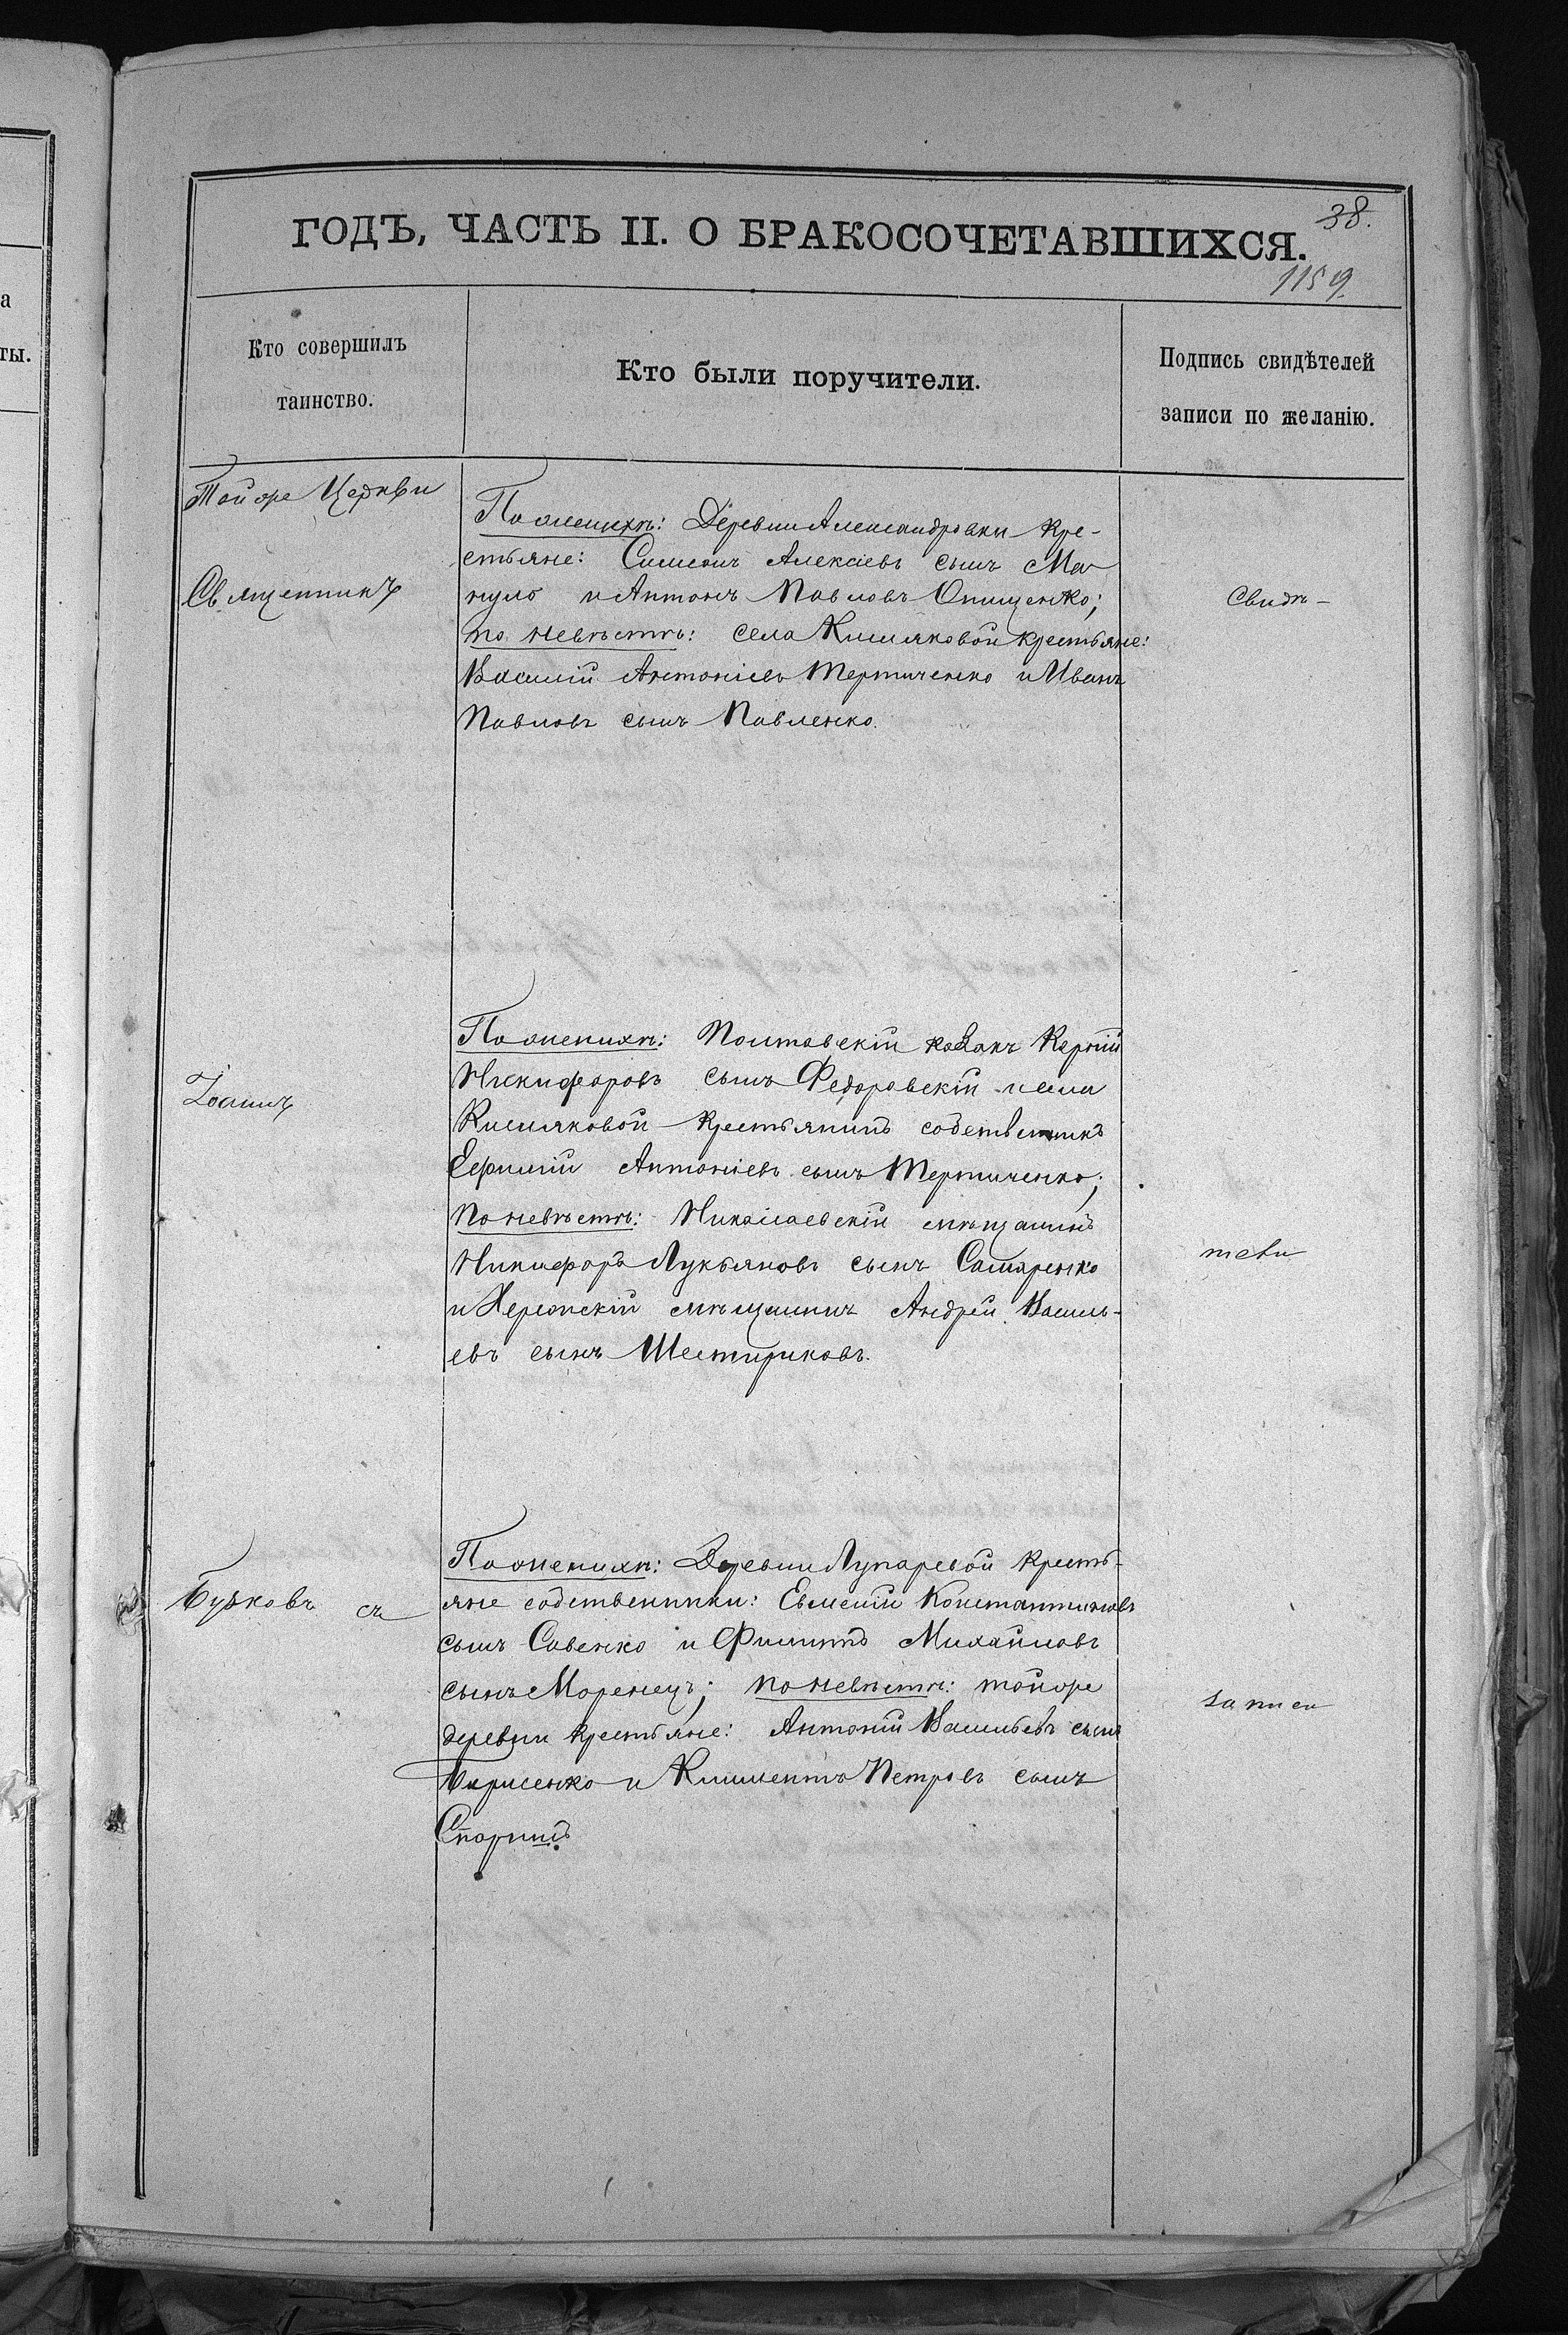 а
ты.
38.
ГОДЪ, ЧАСТЬ II. О БРАКОСОЧЕТАВШИХСЯ.
1159.
Кто совершилъ
таинство.
Кто были поручители.
Подпись свидѣтелей
записи по желанію.
Той же Церкви
Священникъ
Іоаннъ
Бужковъ съ
По женихѣ: Деревни Александровки кре-
стьяне: Симеонъ Алексіевъ сынъ Ма
нуло и Антонъ Павловъ Онищенко;
по невѣстѣ: села Кисляковой крестьяне:
Василій Антоніевъ Тертиченко и Иванъ
Павловъ сынъ Павленко.
По женихѣ: Полтавскій козакъ
Никифоровъ сынъ Федоровскій и села
Кисляковой крестьянинъ собственникъ
Евфимій Антоніевъ сынъ Тертиченко;
по невѣстѣ: Николаевскій мѣщанинъ
Никифоръ Лукьяновъ сынъ Самаренко
и Херсонскій мѣщанинъ Андрей Василь-
евъ сынъ Шестириковъ.
По женихѣ: Деревни Лупаревой кресть-
яне собственники: Евменій Константиновъ
сынъ Савенко и Филиппъ Михайловъ
сынъ Моренецъ; по невѣстѣ: той же
деревни крестьяне: Антоній Васильевъ сынъ
Борисенко и Климентъ Петровъ сынъ
Свидѣ-
тели
записи